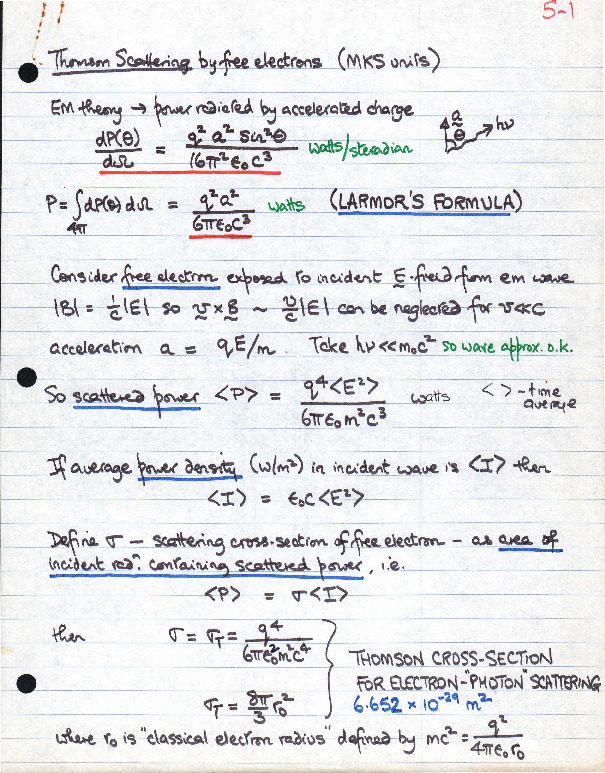 5-1
Thomson Scattering by free electrons (MKS units)
EM theory → power radiated by accelerated charge
a
θ
hν
dP(θ)/dΩ = q² a² sin²θ / 16π²ε₀c³ watts/steradian
P = ∫4π dP(θ) dΩ = q²a² / 6πε₀c³ watts (LARMOR'S FORMULA)
Consider free electron exposed to incident E-field from em wave
|B| = 1/c |E| so v × B ~ v/c |E| can be neglected for v<<c
acceleration a = qE/m. Take hν << m₀c² so wave approx. o.k.
So scattered power <P> = q⁴<E²> / 6πε₀m²c³ watts < > - time average
If average power density (W/m²) in incident wave is <I> then
<I> = ε₀c<E²>
Define σ – scattering cross-section of free electron – as area of
incident radⁿ. containing scattered power, i.e.
<P> = σ<I>
then σ = σT = q⁴ / 6πε₀²m²c⁴
σT = 8π/3 r₀²
THOMSON CROSS-SECTION
FOR ELECTRON-"PHOTON" SCATTERING
6.652 × 10⁻²⁹ m²
where r₀ is "classical electron radius" defined by mc² = q² / 4πε₀r₀